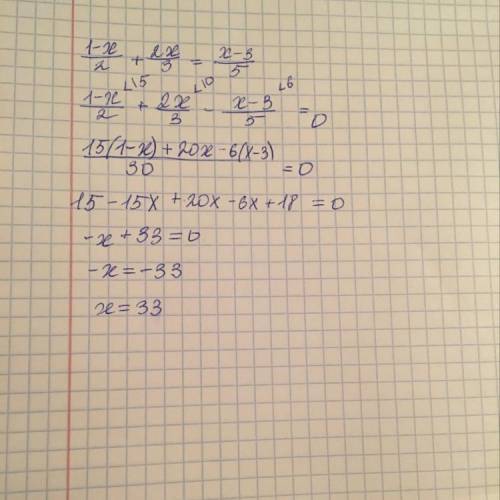 (1-x)/2 + 2x/3 = (x-3)/5
(1-x)/2 ∟15 + 2x/3 ∟10 - (x-3)/5 ∟6 = 0
(15(1-x) + 20x - 6(x-3))/30 = 0
15 - 15x + 20x - 6x + 18 = 0
-x + 33 = 0
-x = -33
x = 33